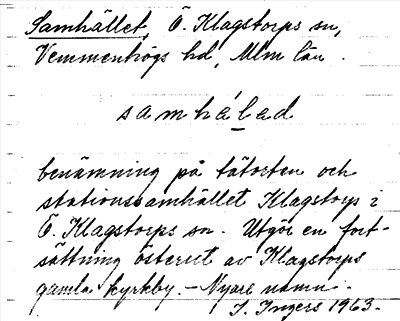 Samhället, Ö. Klagstorps sn,
Vemmenhögs hd, Mlm län.
samhálad
benämning på tätorten och
stationssamhället Klagstorp i
Ö. Klagstorps sn. Utgör en fort-
sättning österut av Klagstorps
gamla kyrkby. - Nyare namn.
I. Ingers 1963.